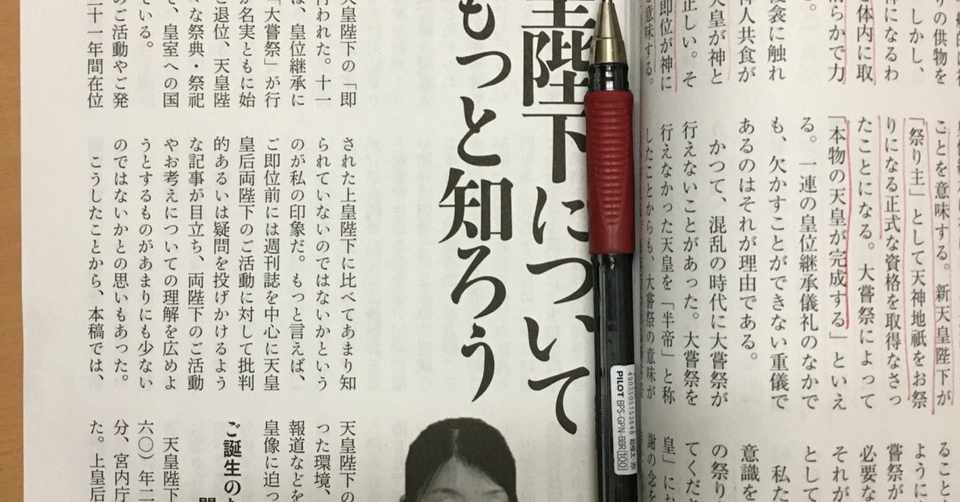 りの供物を
しかし、
神になるわ
体内に取
らかで力
衾に触れ
人共食が
天皇が神と
正しい。そ
即位が神に
意味する。
ことを意味する。新天皇陛下が
「祭り主」として天神地祇をお祭
りになる正式な資格を取得なさっ
たことになる。大嘗祭によって
「本物の天皇が完成する」といえ
る。一連の皇位継承儀礼のなかで
も、欠かすことができない重儀で
あるのはそれが理由である。
かつて、混乱の時代に大嘗祭が
行えないことがあった。大嘗祭を
行えなかった天皇を「半帝」と称
したことからも、大嘗祭の意味が
ること
ように
嘗祭が
必要な
それが
として
私た
意識を
の祭り
てくだ
皇」にお
謝の念を
PILOT BPS-GPN-BBR(100)
皇陛下について
もっと知ろう
天皇陛下の「即
行われた。十一
は、皇位継承に
「大嘗祭」が行
が名実ともに始
ご退位、天皇陛
々な祭典・祭祀
ている。
て、皇室への国
のご活動やご発
十一年間在位
された上皇陛下に比べてあまり知
られていないのではないかという
のが私の印象だ。もっと言えば、
ご即位前には週刊誌を中心に天皇
皇后両陛下のご活動に対して批判
的あるいは疑問を投げかけるよう
な記事が目立ち、両陛下のご活動
やお考えについての理解を広めよ
うとするものがあまりにも少ない
のではないかとの思いもあった。
こうしたことから、本稿では、
天皇陛下の
った環境、
報道などを
皇像に迫っ
ご誕生の
天皇陛下
六〇）年二
分、宮内庁
た。上皇后